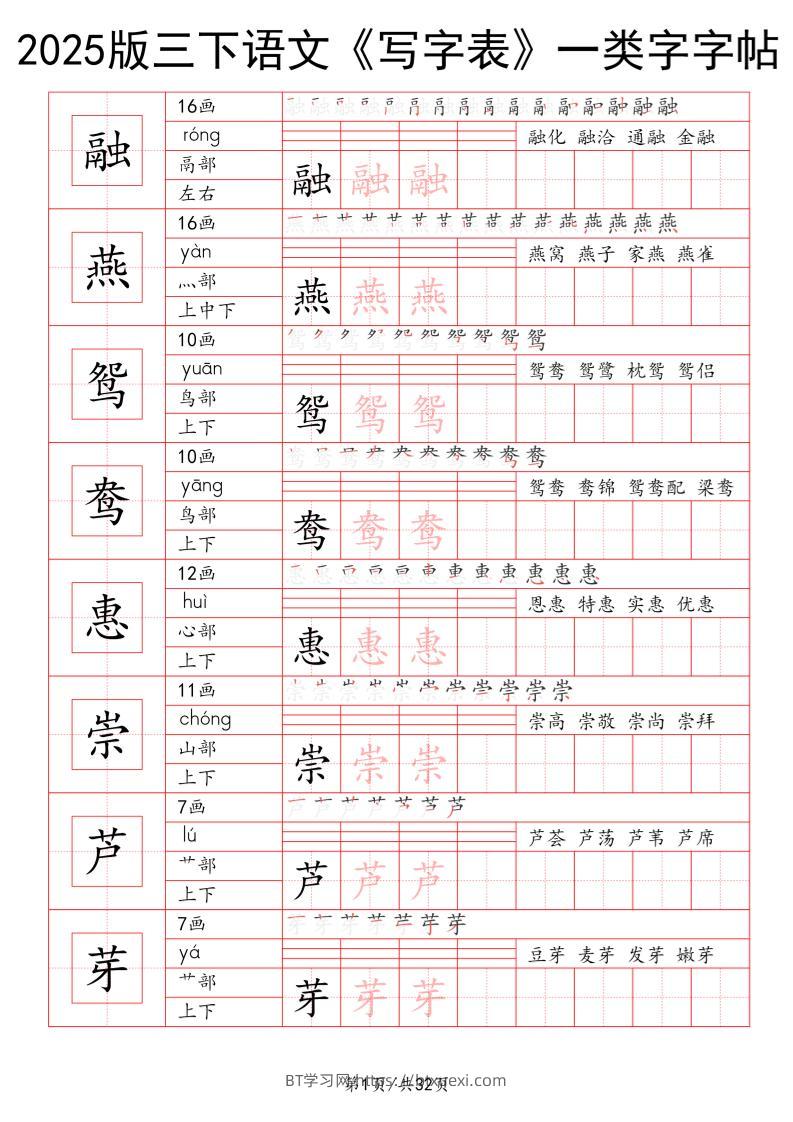 2025版三下语文《写字表》一类字字帖
融
16画
róng
融化 融洽 通融 金融
鬲部
左右
融 融 融
燕
16画
yàn
燕窝 燕子 家燕 燕雀
灬部
上中下
燕 燕 燕
鸳
10画
yuān
鸳鸯 鸳鹭 枕鸳 鸳侣
鸟部
上下
鸳 鸳 鸳
鸯
10画
yāng
鸳鸯 鸯锦 鸳鸯配 梁鸯
鸟部
上下
鸯 鸯 鸯
惠
12画
huì
恩惠 特惠 实惠 优惠
心部
上下
惠 惠 惠
崇
11画
chóng
崇高 崇敬 崇尚 崇拜
山部
上下
崇 崇 崇
芦
7画
lú
芦荟 芦荡 芦苇 芦席
艹部
上下
芦 芦 芦
芽
7画
yá
豆芽 麦芽 发芽 嫩芽
艹部
上下
芽 芽 芽
BT学习网 https://btxuexi.com
第1页/共32页